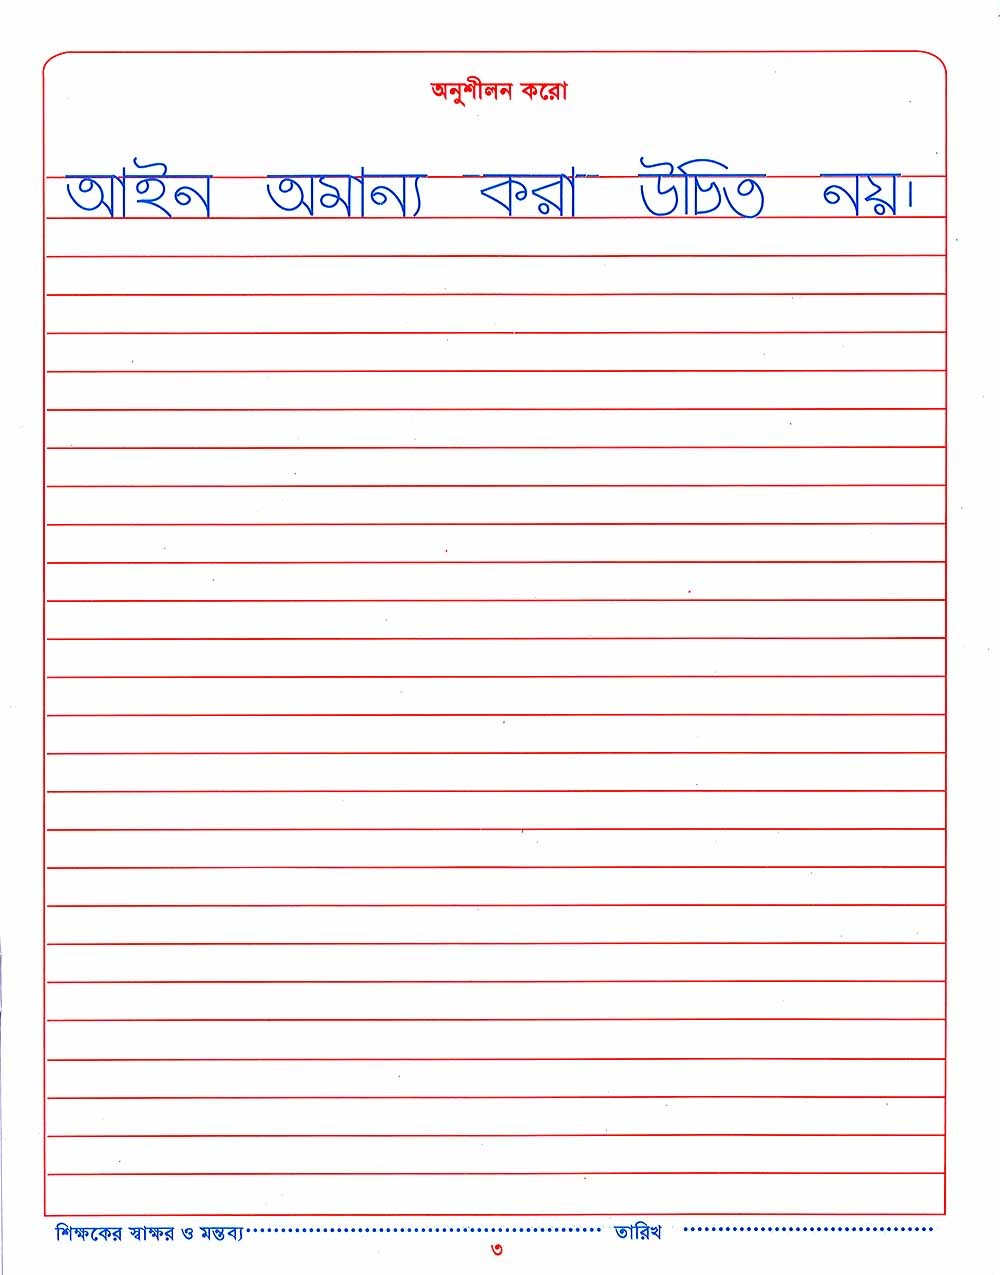 অনুশীলন করো
আইন অমান্য করা উচিত নয়।
শিক্ষকের স্বাক্ষর ও মন্তব্য.......................................................... তারিখ ........................................
৩